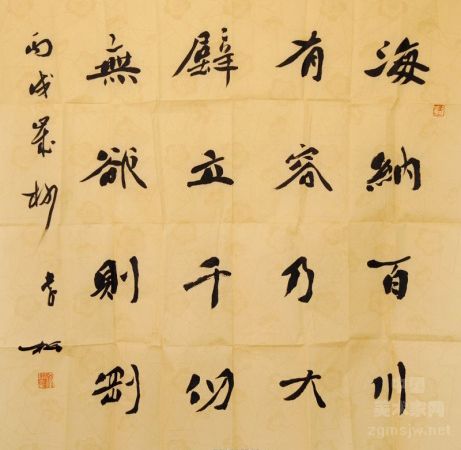 海納百川
有容乃大
壁立千仞
無欲則剛
丙戌
美术家网
zgmsjw.net